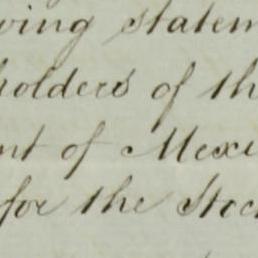 wing statem
holders of th
nt of Mexi
for the Stoc